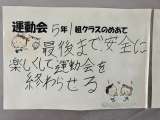 運動会 5年1組クラスのめあて
最後まで安全に
楽しくして運動会を
終わらせる